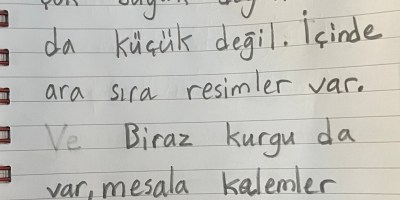 da küçük değil. İçinde
ara sıra resimler var.
Ve Biraz kurgu da
var, mesala kalemler